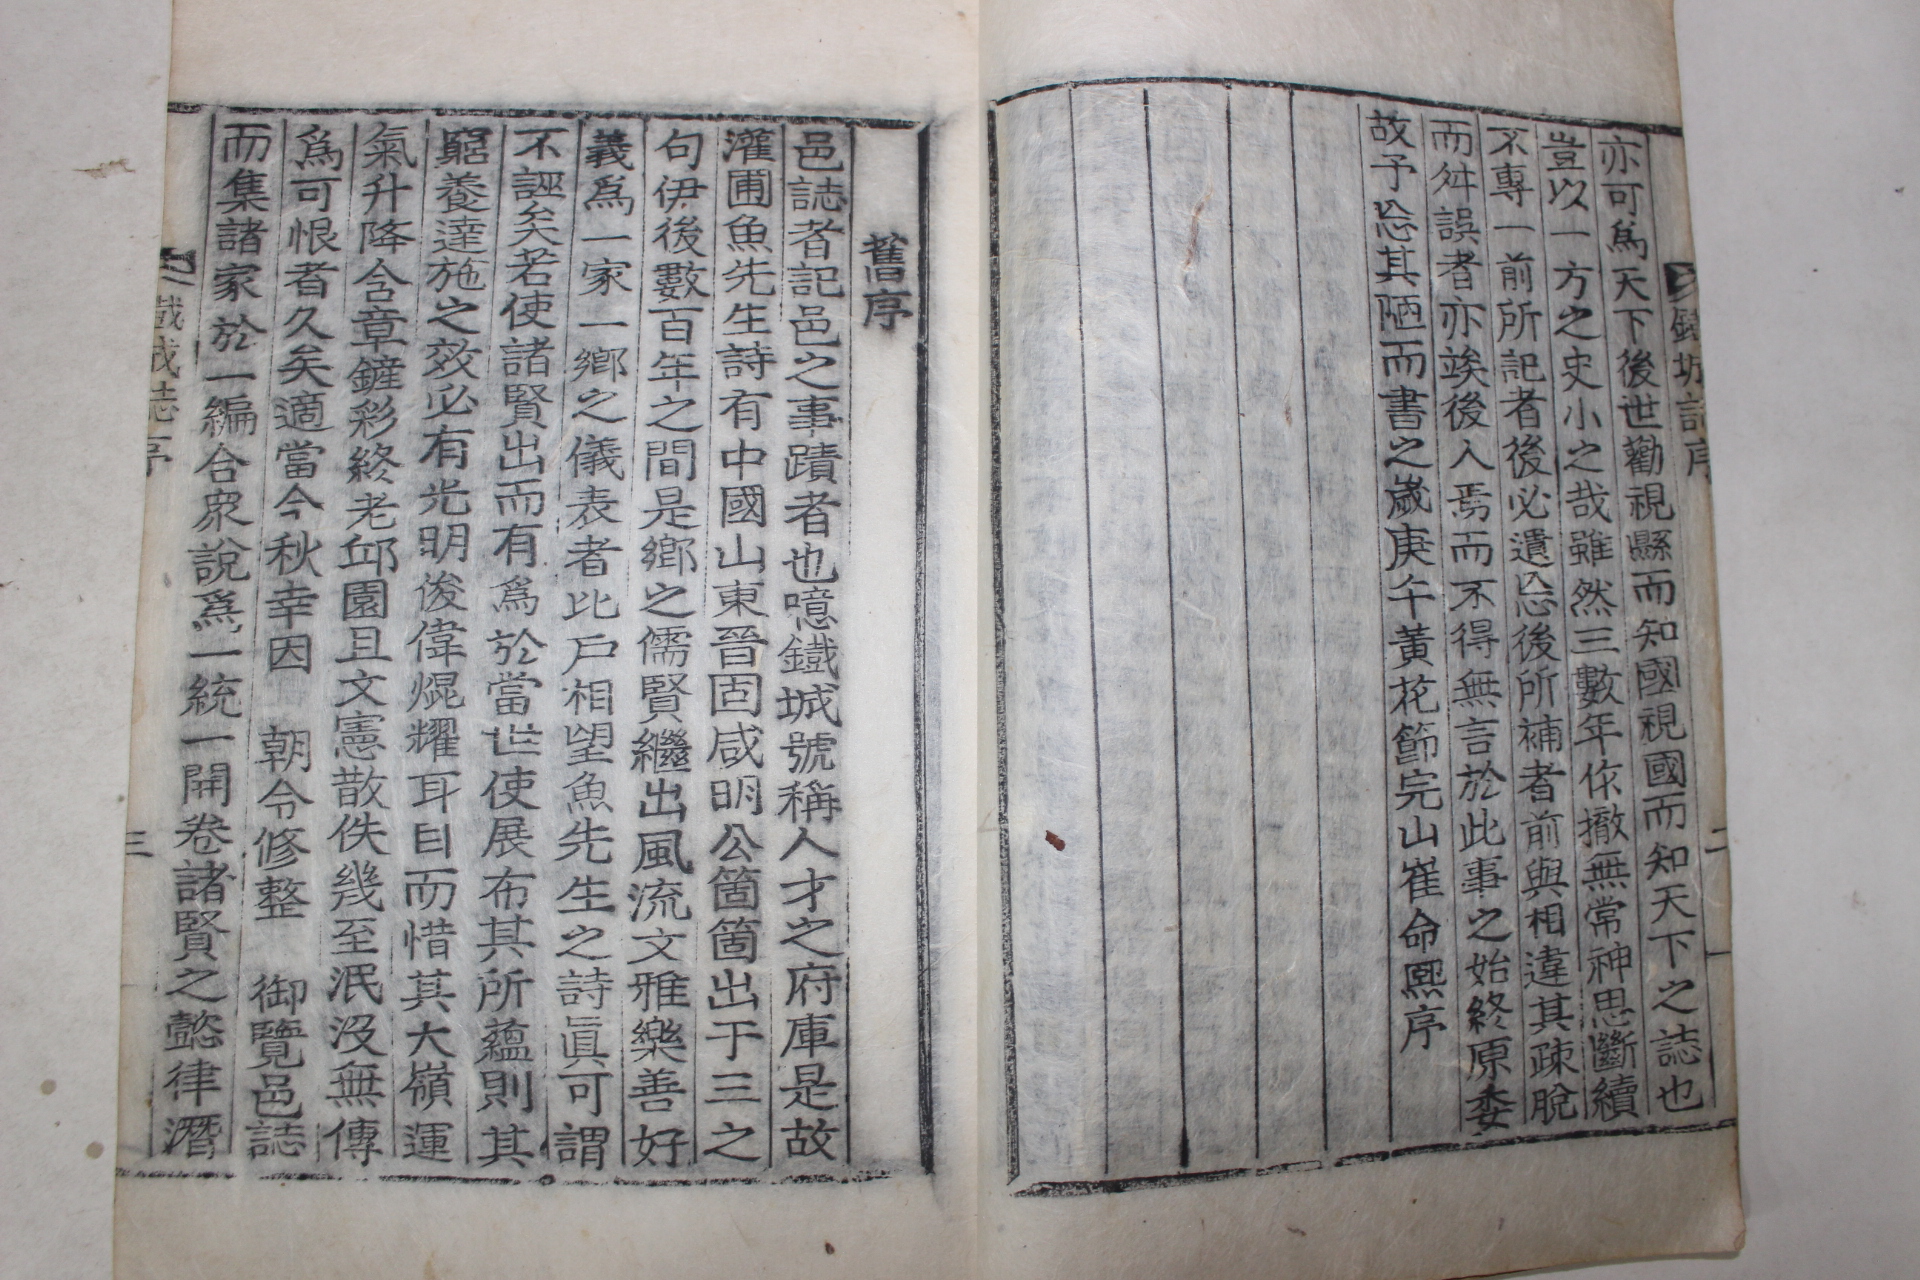 亦可爲天下後世勸視縣而知國視國而知天下之誌也
豈以一方之史小之哉雖然三數年作撤無常神思斷續
不專一前所記者後必遺忘後所補者前與相違其疎脫
而舛誤者亦竢後人焉而不得無言於此事之始終原委
故予忘其陋而書之歲庚午黃花節完山崔命熙序
鐵城誌序
二
舊序
邑誌者記邑之事蹟者也噫鐵城號稱人才之府庫是故
灌圃魚先生詩有中國山東晉固咸明公箇箇出于三之
句伊後數百年之間是鄕之儒賢繼出風流文雅樂善好
義爲一家一鄕之儀表者比戶相望魚先生之詩眞可謂
不誣矣若使諸賢出而有爲於當世使展布其所蘊則其
窮養達施之效必有光明俊偉焜耀耳目而惜其大嶺運
氣升降含章鏟彩終老邱園且文憲散佚幾至泯沒無傳
爲可恨者久矣適當今秋幸因 朝令修整 御覽邑誌
而集諸家於一編合衆說爲一統一開卷諸賢之懿律潛
鐵城誌序
三